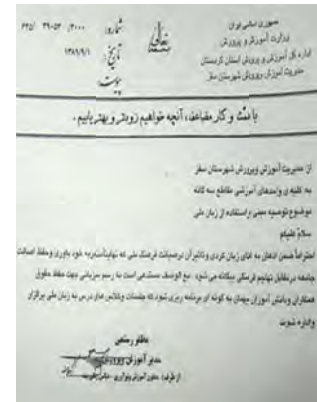 جمهوری اسلامی ایران
وزارت آموزش و پرورش
اداره کل آموزش و پرورش استان کردستان
مدیریت آموزش و پرورش شهرستان سقز
بسمه تعالی
شماره:
تاریخ: ۱۳۸۹/۹/۱
پیوست:
با همّت و کار مضاعف، آنچه خواهیم زودتر و بهتر یابیم.
از مدیریت آموزش وپرورش شهرستان سقز
به کلیه ی واحدهای آموزشی مقاطع سه گانه
موضوع:توصیه مبنی براستفاده از زبان ملی
سلامٌ علیکم
احتراماً ضمن اذهان به اتای زبان کردی وتاثیرآن درصیانت فرهنگ ملی که نهایتاًمنجربه خود باوری وحفظ اصالت
جامعه درتقابل تهاجم فرهنگی بیگانه می شود . مع الوصف مستدعی است به رسم میزبانی جهت حفظ حقوق
همکاران ودانش آموزان میهمان به گونه ای برنامه ریزی شود که جلسات وکلاس های درس به زبان ملی برگزار
واداره شود.
مظفر رستمی
مدیر آموزش
از طرف: